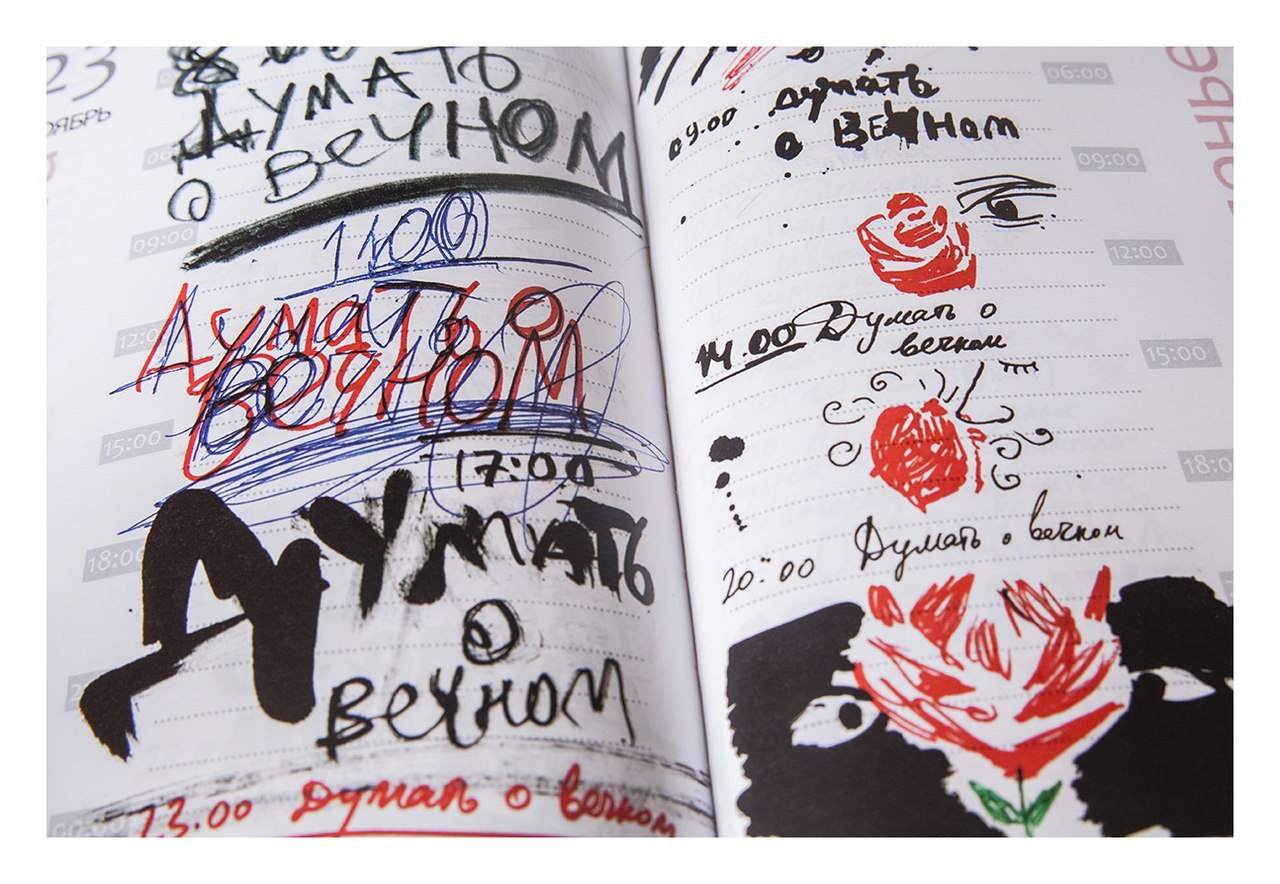 23
8.00
Думать
о вечном
06:00
09:00
11.00
12:00
Думать о
вечном
15:00
17:00
18:00
Думать
о
вечном
23.00 Думать о вечном
00:00
06:00
09.00 думать
о вечном
09:00
12:00
14.00 Думать о
вечном
15:00
18:0
20:00 Думать о вечном